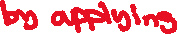 by applying